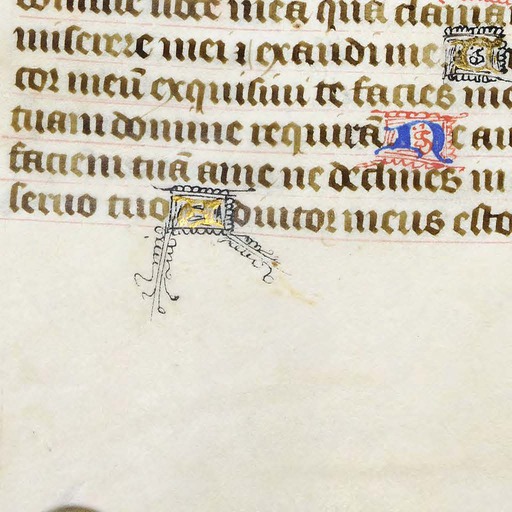 domine uoce mea qua clama
miserere mei ⁊ exaudi me T
cor meū exquisiui te facies me
tuam domine requirā Ne au
faciem tuā a me ne declines in
seruo tuo Adiutor meus esto